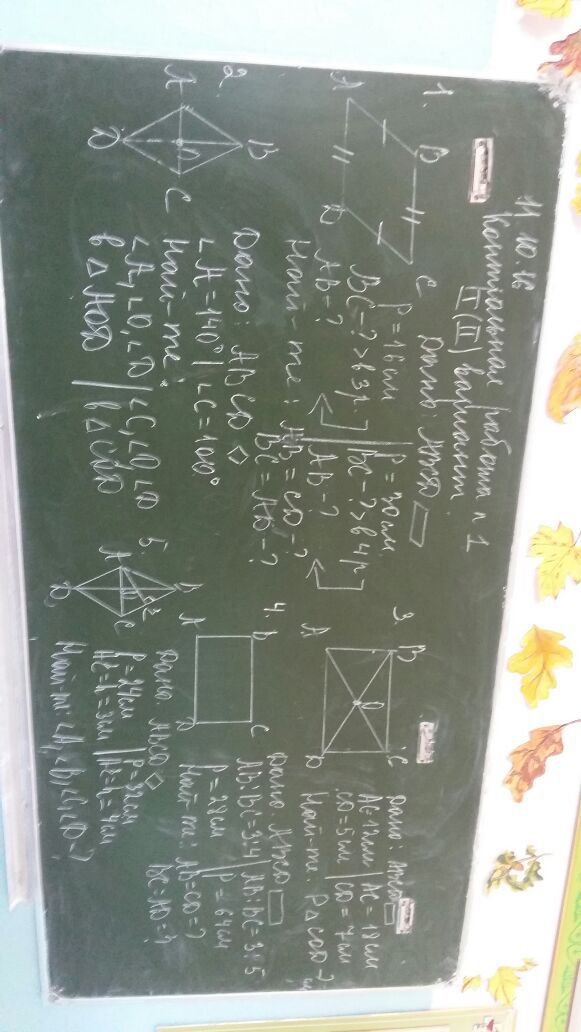 11.10.16
Контрольная работа n 1
I (II) вариант
1.
B
C
A
D
Дано ABCD
P = 16 см
BC - ? > в 3 р.
AB = ?
P = 30 см
BC - ? > в 4 р
AB - ?
Най-те: AB = CD - ?
BC = AD - ?
2.
B
A
O
C
D
Дано: ABCD ◇
∠A = 140° | ∠C = 100°
Най-те:
∠A, ∠O, ∠D | ∠C, ∠O, ∠D
в △ AOD | в △ COD
3.
B
C
O
A
D
Дано: ABCD
AC = 12 см | AC = 18 см
CD = 5 см | CD = 7 см
Най-те P△COD - ?
4.
B
C
A
D
Дано: ABCD
AB:BC = 3:4 | AB:BC = 3:5
P = 28 см | P = 64 см
Най-те: AB = CD = ?
BC = AD = ?
5.
B
A
C
D
Дано ABCD ◇
P = 24 см | P = 32 см
= h = 3 см | = h = 4 см
Най-те: ∠A, ∠B, ∠C, ∠D - ?